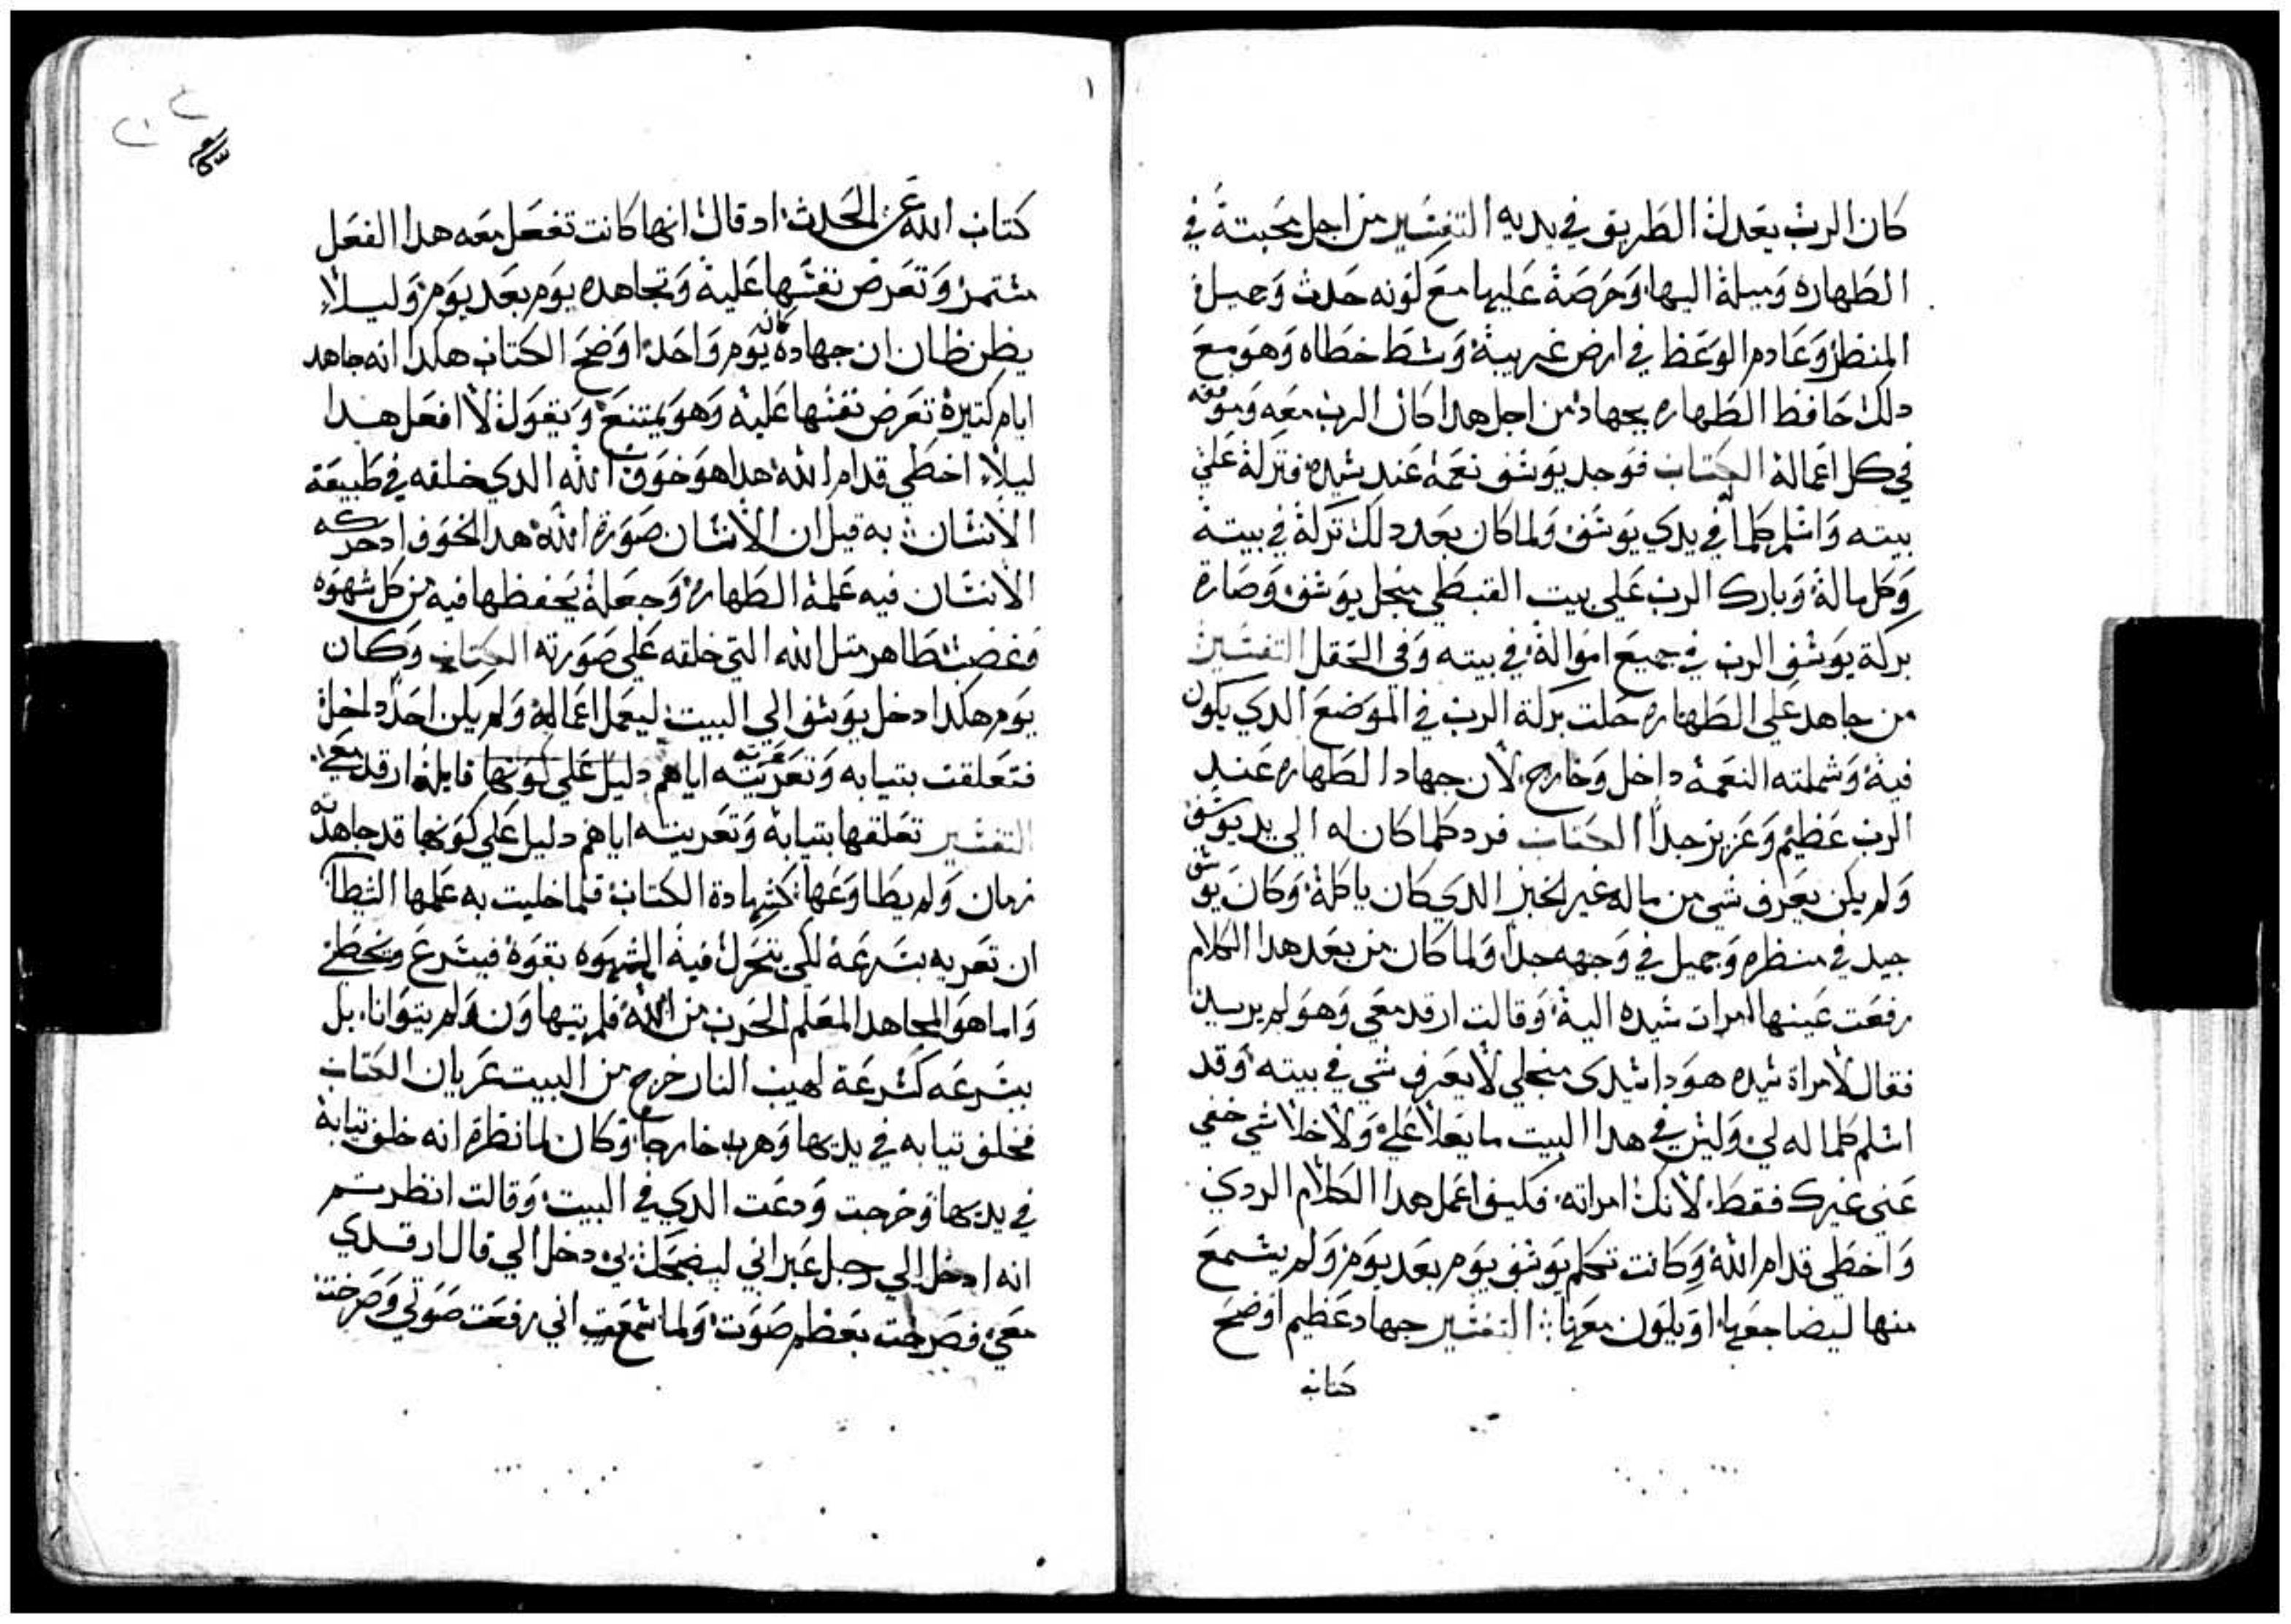 كان الرب يعدل الطريق في يديه التفسير من اجل محبتة في
الطهاره وميلة اليها وحرصة عليها مع كونه حدث وجميل
المنظر وعادم الوعظ في ارض غريبة وشط خطاه وهو مع
دلك حافظ الطهاره بجهاد من اجل هدا كان الرب معه وموفقه
في كل اعمالة الكتاب فوجد يوسف نعمة عند سيده فتركة علي
بيته واسلم كلما في يدي يوسف ولما كان بعد دلك تركة في بيتة
وكل مالة وبارك الرب علي بيت القبطي منجل يوسف وصارة
بركة يوسف الرب في جميع اموالة في بيته وفي الحقل التفسير
من جاهد علي الطهاره حلت بركة الرب في الموضع الدي يكون
فية وشملته النعمة داخل وخارج لان جهاد الطهاره عند
الرب عظيم وعزيز جدا الكتاب فرد كلما كان له الي يد يوسف
ولم يكن يعرف شي من ماله غير الخبز الدي كان ياكلة وكان يوسف
جيد في منظره وجميل في وجهه جدا ولما كان من بعد هدا الكلام
رفعت عينها امرات سيده الية وقالت ارقد معي وهو لم يريد
فقال لامراة سيده هودا سيدي منجلي لا يعرف شي في بيته وقد
اسلم كلما له لي وليس في هدا البيت ما يعلا علي ولا خلا شي خفي
عني غيرك فقط لانك امراته فكيف اعمل هدا الكلام الردي
واخطي قدام الله وكانت تكلم يوسف يوم بعد يوم ولم يسمع
منها ليضاجعها او يكون معها التفسير جهاد عظيم اوضح
كتاب
١
كتاب الله عن الحدث اد قال انها كانت تفعل معه هدا الفعل
مستمر وتعرض نفسها علية وتجاهده يوم بعد يوم وليلا
يظن ظان ان جهاده كان يوم واحد اوضح الكتاب هكدا انه جاهد
ايام كتيرة تعرض نفسها علية وهو يمتنع ويقول لا افعل هدا
ليلا اخطي قدام الله هدا هو خوف الله الدي خلقه في طبيعة
الانسان به قيل ان الانسان صورة الله هدا الخوف ادحركه
الانسان فيه علمة الطهاره وجعلة يحفظها فيه من كل شهوه
وغضب طاهر متل الله التي خلقه علي صورته الكتاب وكان
يوم هكدا دخل يوسف الي البيت ليعمل اعمالة ولم يكن احد داخل
فتعلقت بتيابه وتعريته اياهم دليل علي كونها قايلة ارقد معي
التفسير تعلقها بتيابة وتعريته اياهم دليل علي كونها قد جاهدته
زمان ولم يطاوعها كشهادة الكتاب فلما خليت به علمها الشيطان
ان تعريه بسرعة لكي يتحرك فية الشهوه بقوة فيسرع ويخطي
واما هو المجاهد المعلم الحرب من الله فلم يتهاون ولم يتوانا بل
بسرعه كسرعة لهيب النار خرج من البيت عريان الكتاب
فخلف تيابه في يديها وهرب خارجا وكان لما نظرة انه خلف تيابة
في يديها وخرجت ودعت الدي في البيت وقالت انظر
انه ادخل الي رجل عبراني ليضحك بي دخل الي قال ارقدي
معي فصرخت بعظم صوت ولما سمعت اني رفعت صوتي وصرخت